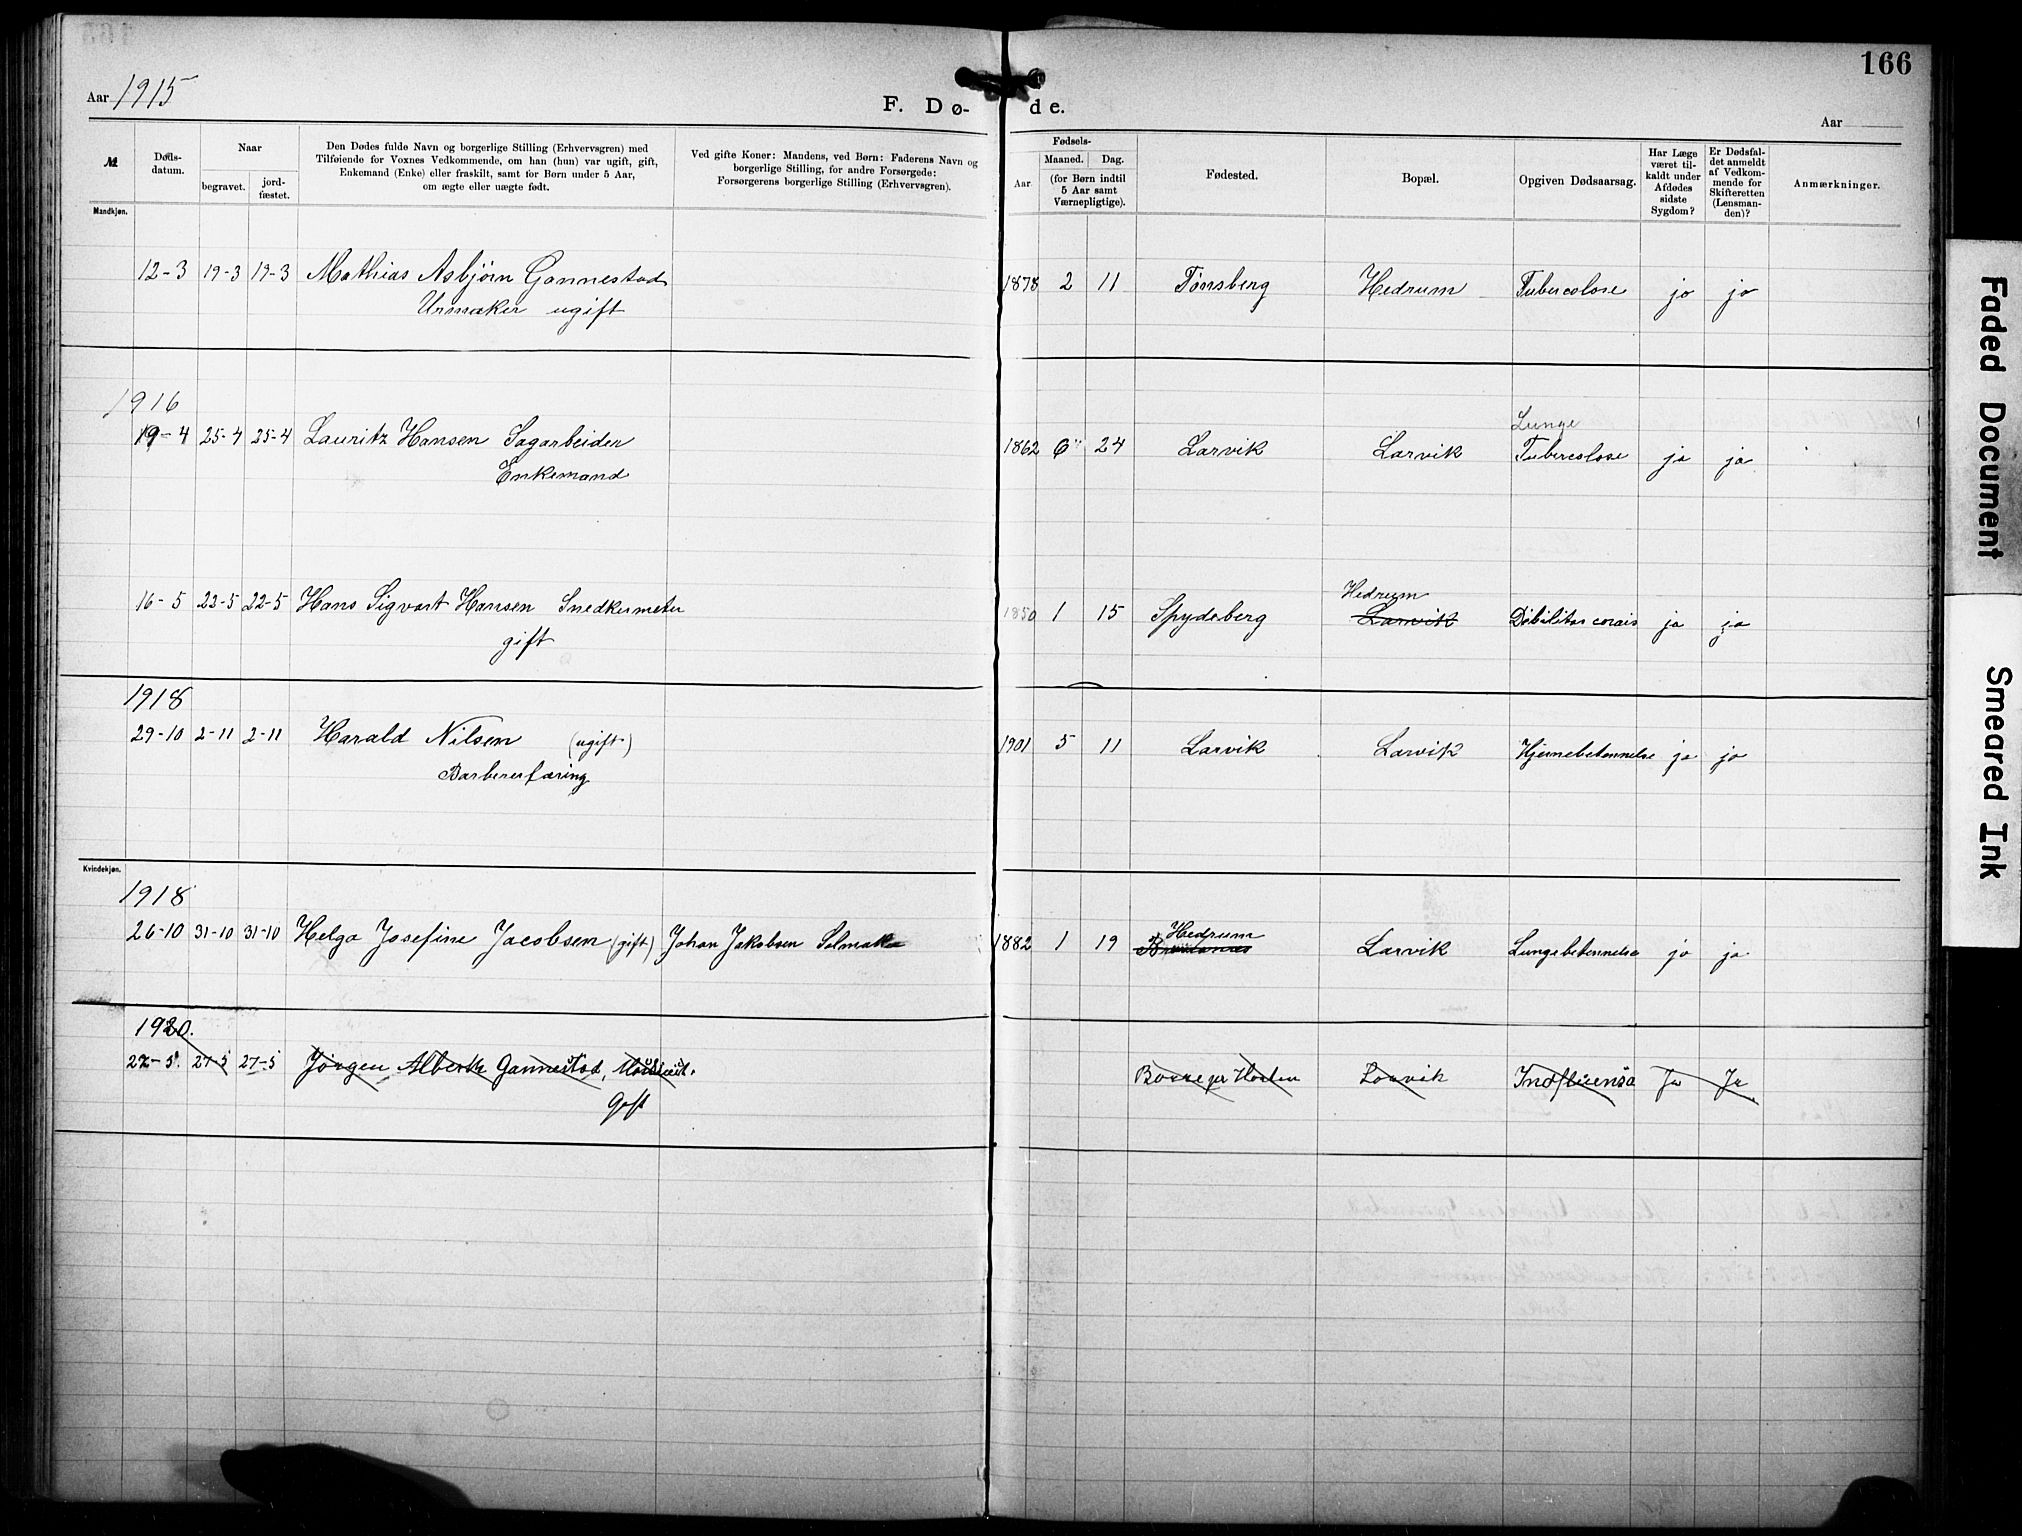 166
Aar 1915
F. Dø-
de.
Aar
№
Døds-
datum.
Naar
begravet.
jord-
fæstet.
Den Dødes fulde Navn og borgerlige Stilling (Erhvervsgren) med
Tilføiende for Voxnes Vedkommende, om han (hun) var ugift, gift,
Enkemand (Enke) eller fraskilt, samt for Børn under 5 Aar,
om ægte eller uægte født.
Ved gifte Koner: Mandens, ved Børn: Faderens Navn og
borgerlige Stilling, for andre Forsørgede:
Forsørgerens borgerlige Stilling (Erhvervsgren).
Fødsels-
Aar
Maaned.
Dag.
(for Børn indtil
5 Aar samt
Værnepligtige).
Fødested.
Bopæl.
Opgiven Dødsaarsag.
Har Læge
været til-
kaldt under
Afdødes
sidste
Sygdom?
Er Dødsfal-
det anmeldt
af Vedkom-
mende for
Skifteretten
(Lensman-
den)?
Anmærkninger.
Mandkjøn.
12-3 19-3 19-3 Mathias Asbjørn Gannestad 1878 2 11 Tønsberg Hedrum Tubercolose ja ja
Urmaker ugift
1916
Lunge
19-4 25-4 25-4 Lauritz Hansen Sagarbeider 1862 6 24 Larvik Larvik Tubercolose ja ja
Enkemand
Hedrum
16-5 22-5 22-5 Hans Sigvart Hansen Snedkermester 1850 1 15 Spydeberg Larvik ja ja
gift
1918
29-10 2-11 2-11 Harald Nilsen (ugift) 1901 5 11 Larvik Larvik Hjernebetennelse ja ja
Barbererfaring
Kvindekjøn.
1918
Hedrum
26-10 31-10 31-10 Helga Josefine Jacobsen (gift) Johan Jakobsen Salmaker 1882 1 19 Larvik Lungebetennelse ja ja
1920.
27-5 27-5 Jørgen Albert Gannestad, Larvik Indfluensa Ja Ja
Gift
Faded Document
Smeared Ink